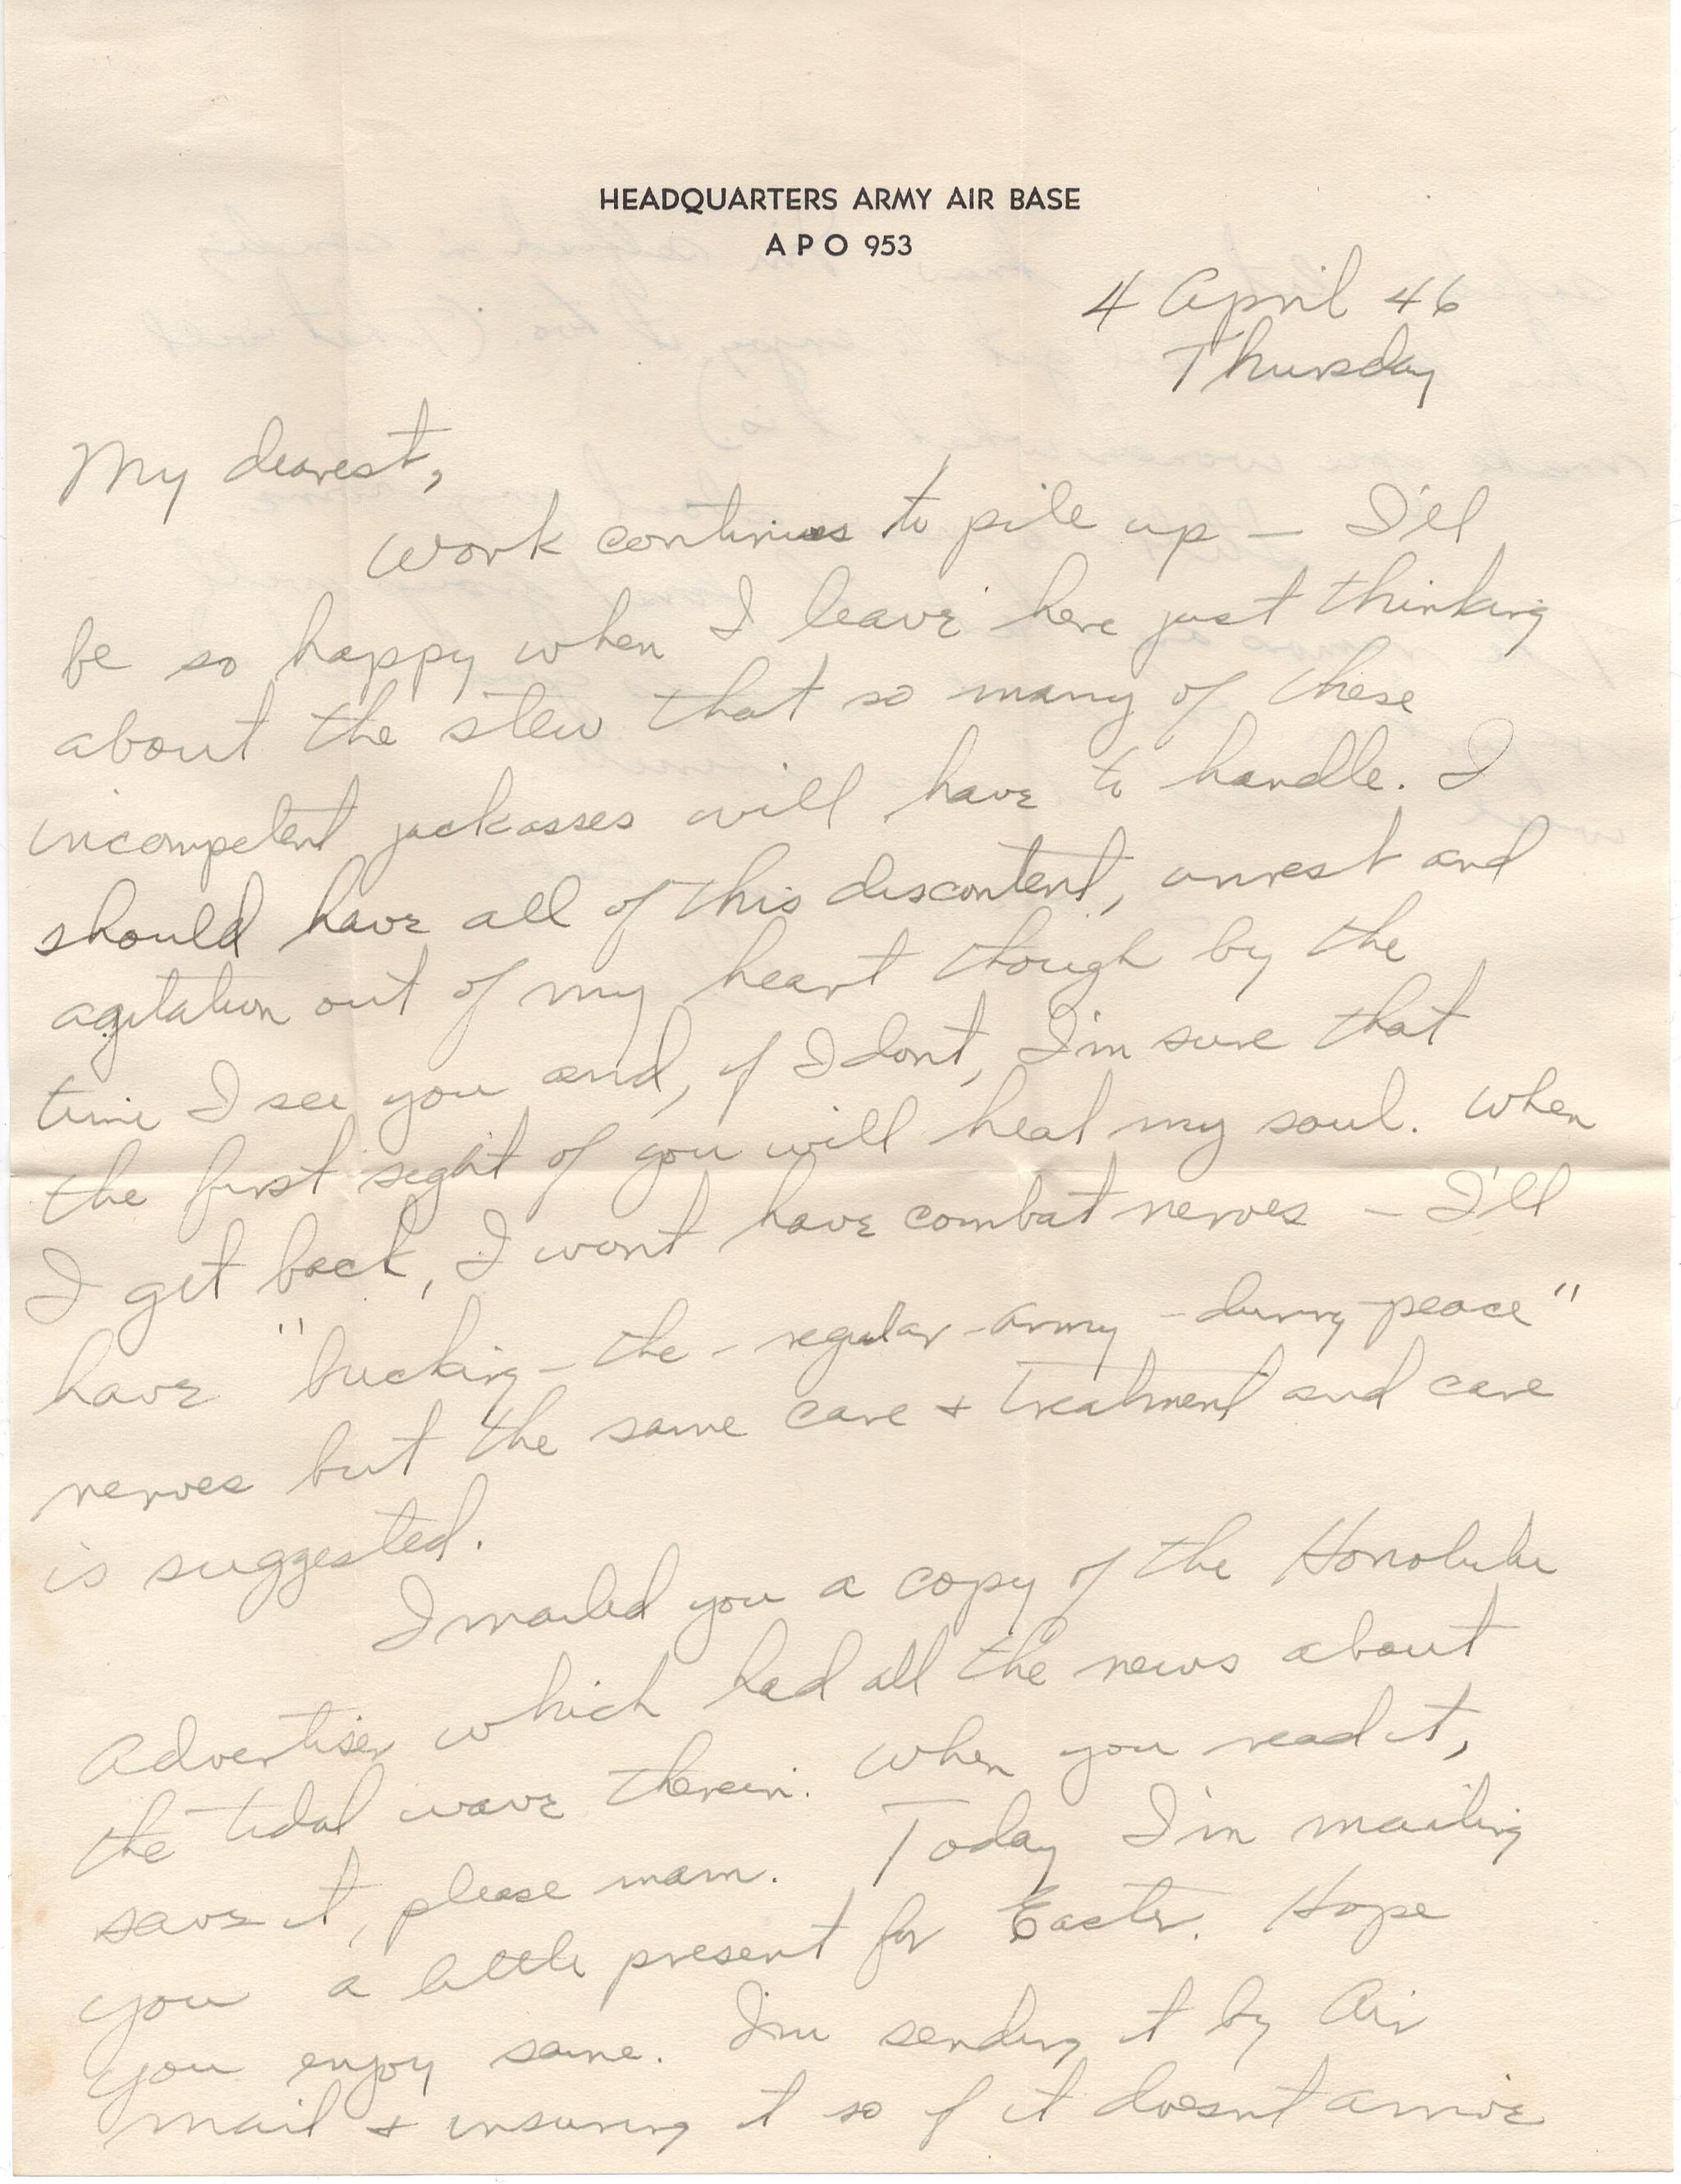 HEADQUARTERS ARMY AIR BASE
A P O 953
4 April 46
Thursday
My dearest,
Work continues to pile up — I'll
be so happy when I leave here just thinking
about the stew that so many of these
incompetent jackasses will have to handle. I
should have all of this discontent, unrest and
agitation out of my heart though by the
time I see you and, if I dont, I'm sure that
the first sight of you will heal my soul. When
I get back, I wont have combat nerves — I'll
have "bucking - the - regular - army - during - peace"
nerves but the same care + treatment and care
is suggested.
I mailed you a copy of the Honolulu
Advertiser which had all the news about
the tidal wave therein. When you read it,
save it, please mam. Today I'm mailing
you a little present for Easter. Hope
you enjoy same. I'm sending it by Air
Mail + insuring it so if it doesnt arrive